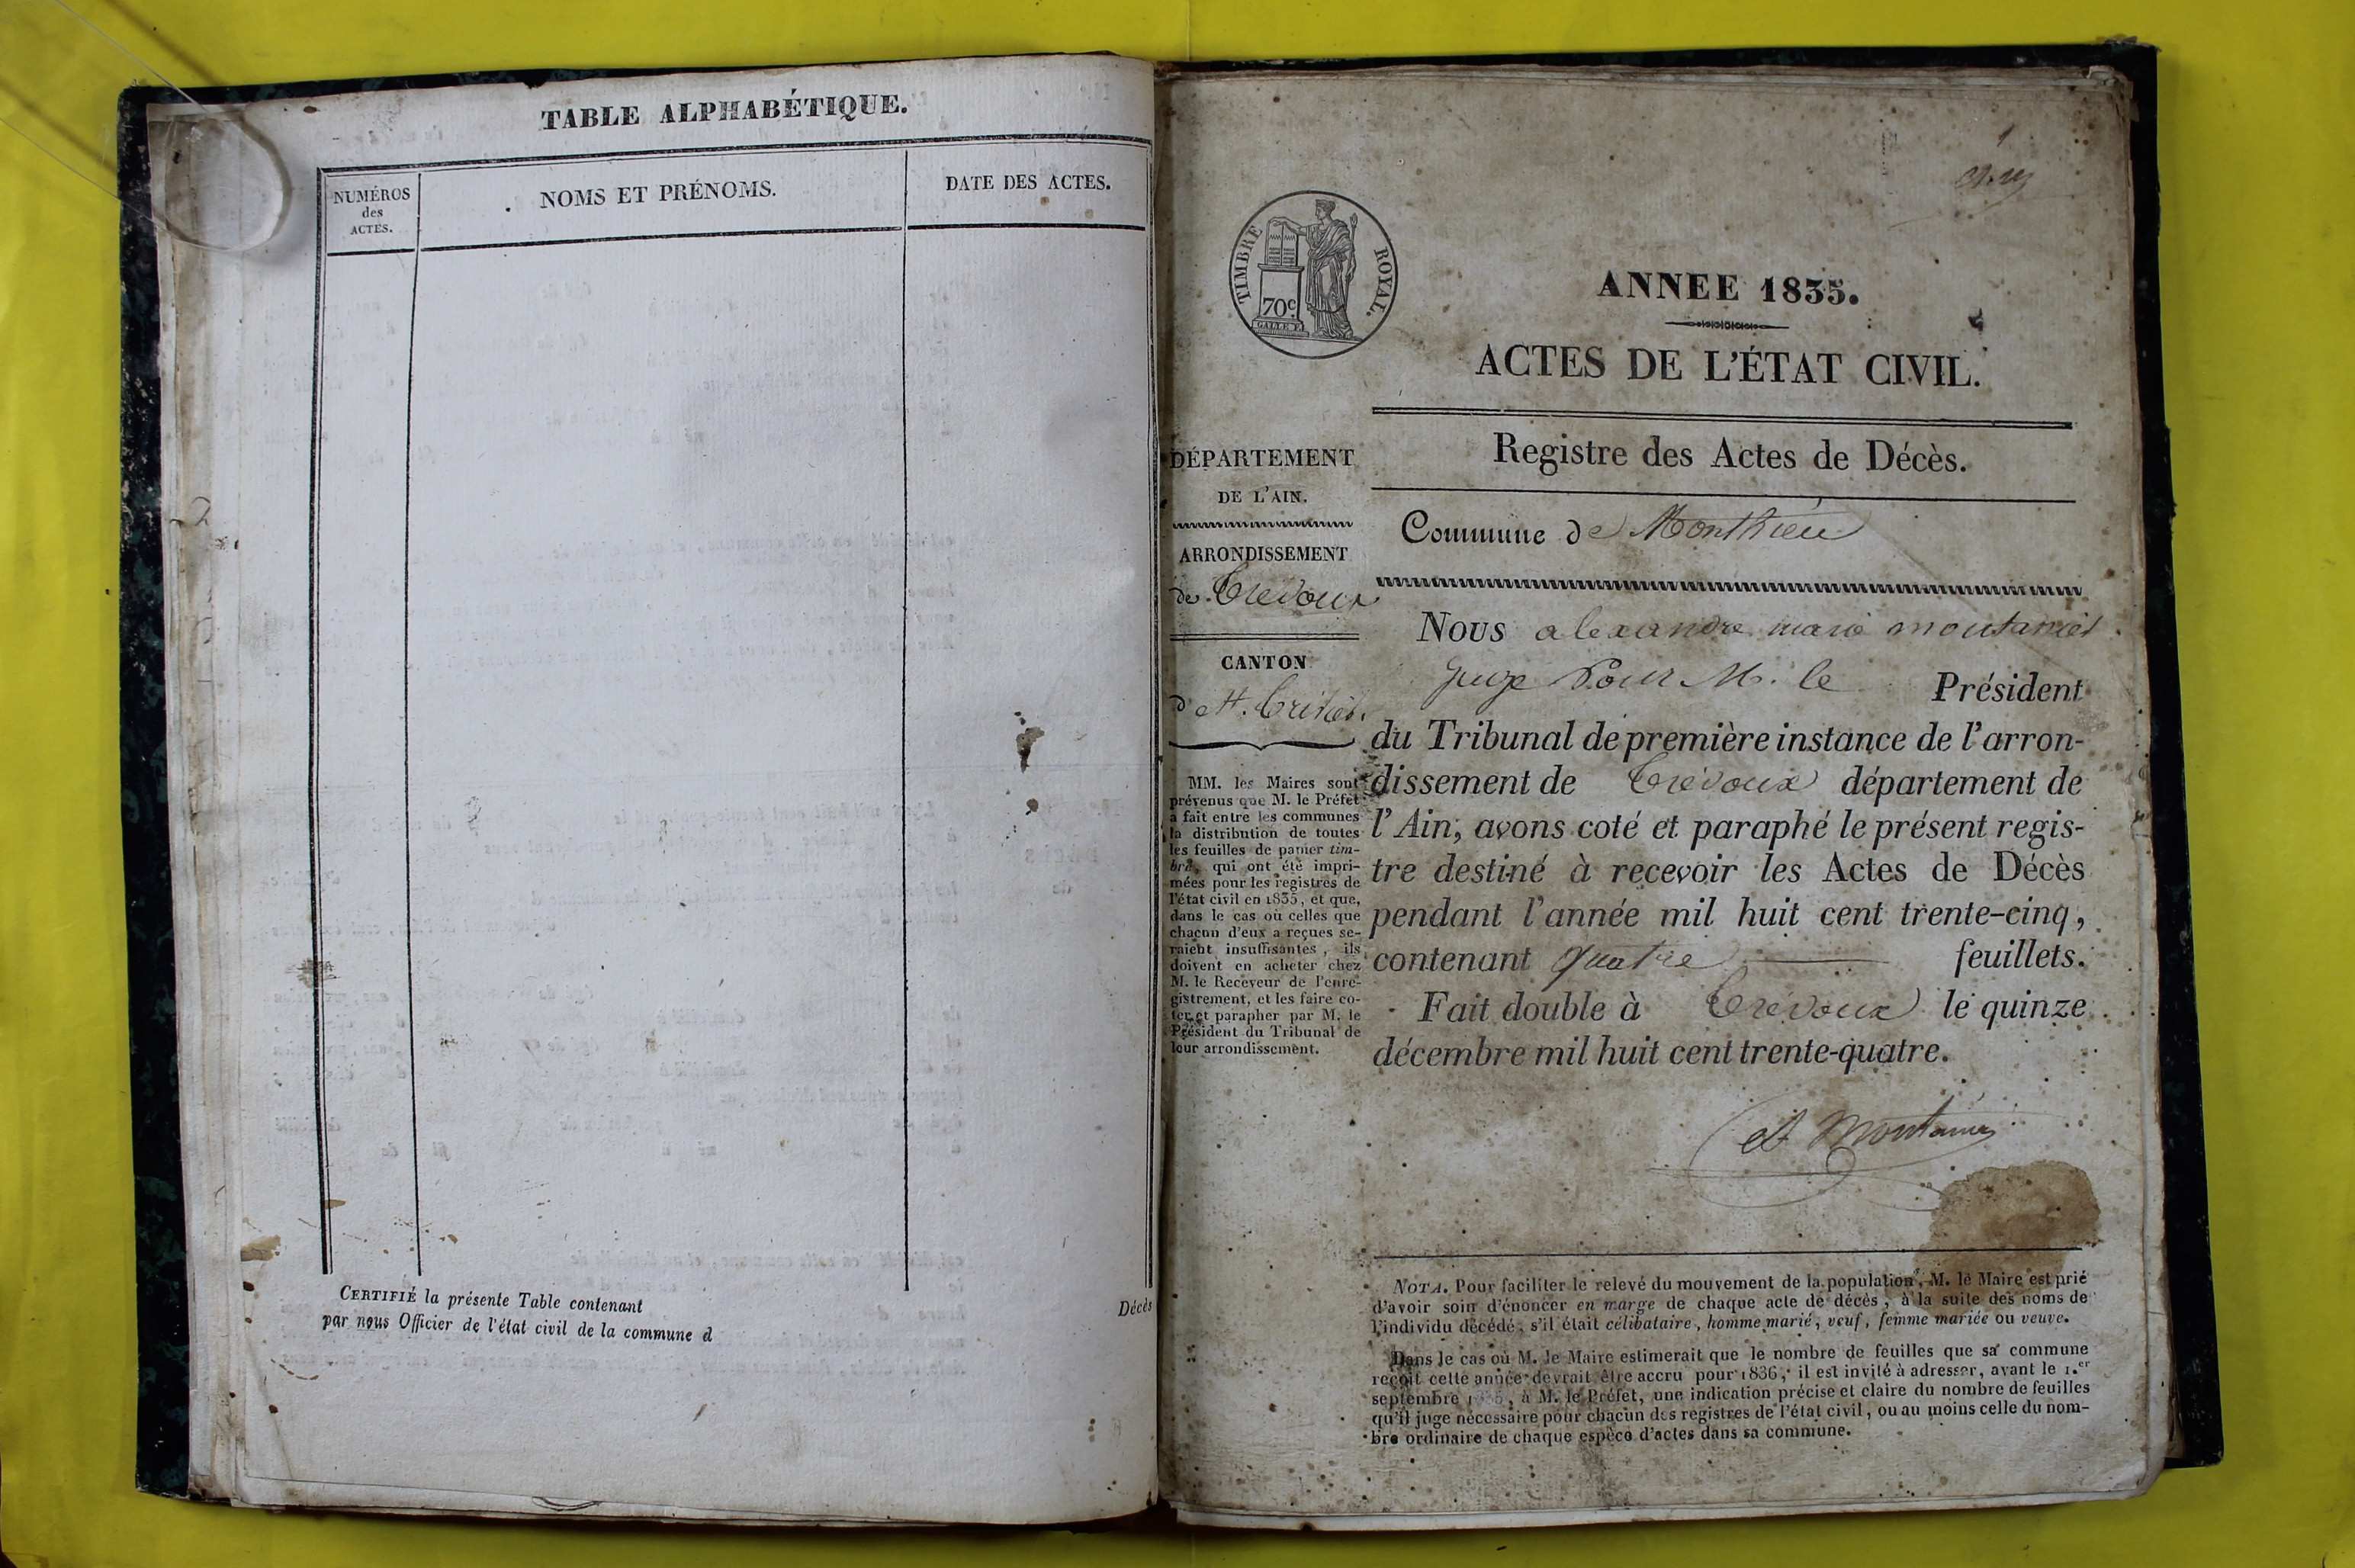 TABLE ALPHABÉTIQUE.
NUMÉROS
des
ACTES.
NOMS ET PRÉNOMS.
DATE DES ACTES.
CERTIFIÉ la présente Table contenant
par nous Officier de l'état civil de la commune d
Décès
1
TIMBRE ROYAL.
70c
GALLE F.
ANNEE 1835.
ACTES DE L'ÉTAT CIVIL.
DÉPARTEMENT
DE L'AIN.
ARRONDISSEMENT
de Trévoux
CANTON
d
MM. les Maires sont
prévenus que M. le Préfet
a fait entre les communes
la distribution de toutes
les feuilles de papier tim-
bré, qui ont été impri-
mées pour les registres de
l'état civil en 1835, et que,
dans le cas où celles que
chacun d'eux a reçues se-
raient insuffisantes, ils
doivent en acheter chez
M. le Receveur de l'enre-
gistrement, et les faire co-
ter et parapher par M. le
Président du Tribunal de
leur arrondissement.
Registre des Actes de Décès.
Commune de Monthieu
Nous alexandre marie
Juge Pour M. le Président
du Tribunal de première instance de l'arron-
dissement de Trévoux département de
l'Ain, avons coté et paraphé le présent regis-
tre destiné à recevoir les Actes de Décès
pendant l'année mil huit cent trente-cinq,
contenant quatre feuillets.
Fait double à Trévoux le quinze
décembre mil huit cent trente-quatre.
NOTA. Pour faciliter le relevé du mouvement de la population, M. le Maire est prié
d'avoir soin d'énoncer en marge de chaque acte de décès, à la suite des noms de
l'individu décédé, s'il était célibataire, homme marié, veuf, femme mariée ou veuve.
Dans le cas où M. le Maire estimerait que le nombre de feuilles que sa commune
reçoit cette année devrait être accru pour 1836, il est invité à adresser, avant le 1.er
septembre 1835, à M. le Préfet, une indication précise et claire du nombre de feuilles
qu'il juge nécessaire pour chacun des registres de l'état civil, ou au moins celle du nom-
bre ordinaire de chaque espèce d'actes dans sa commune.